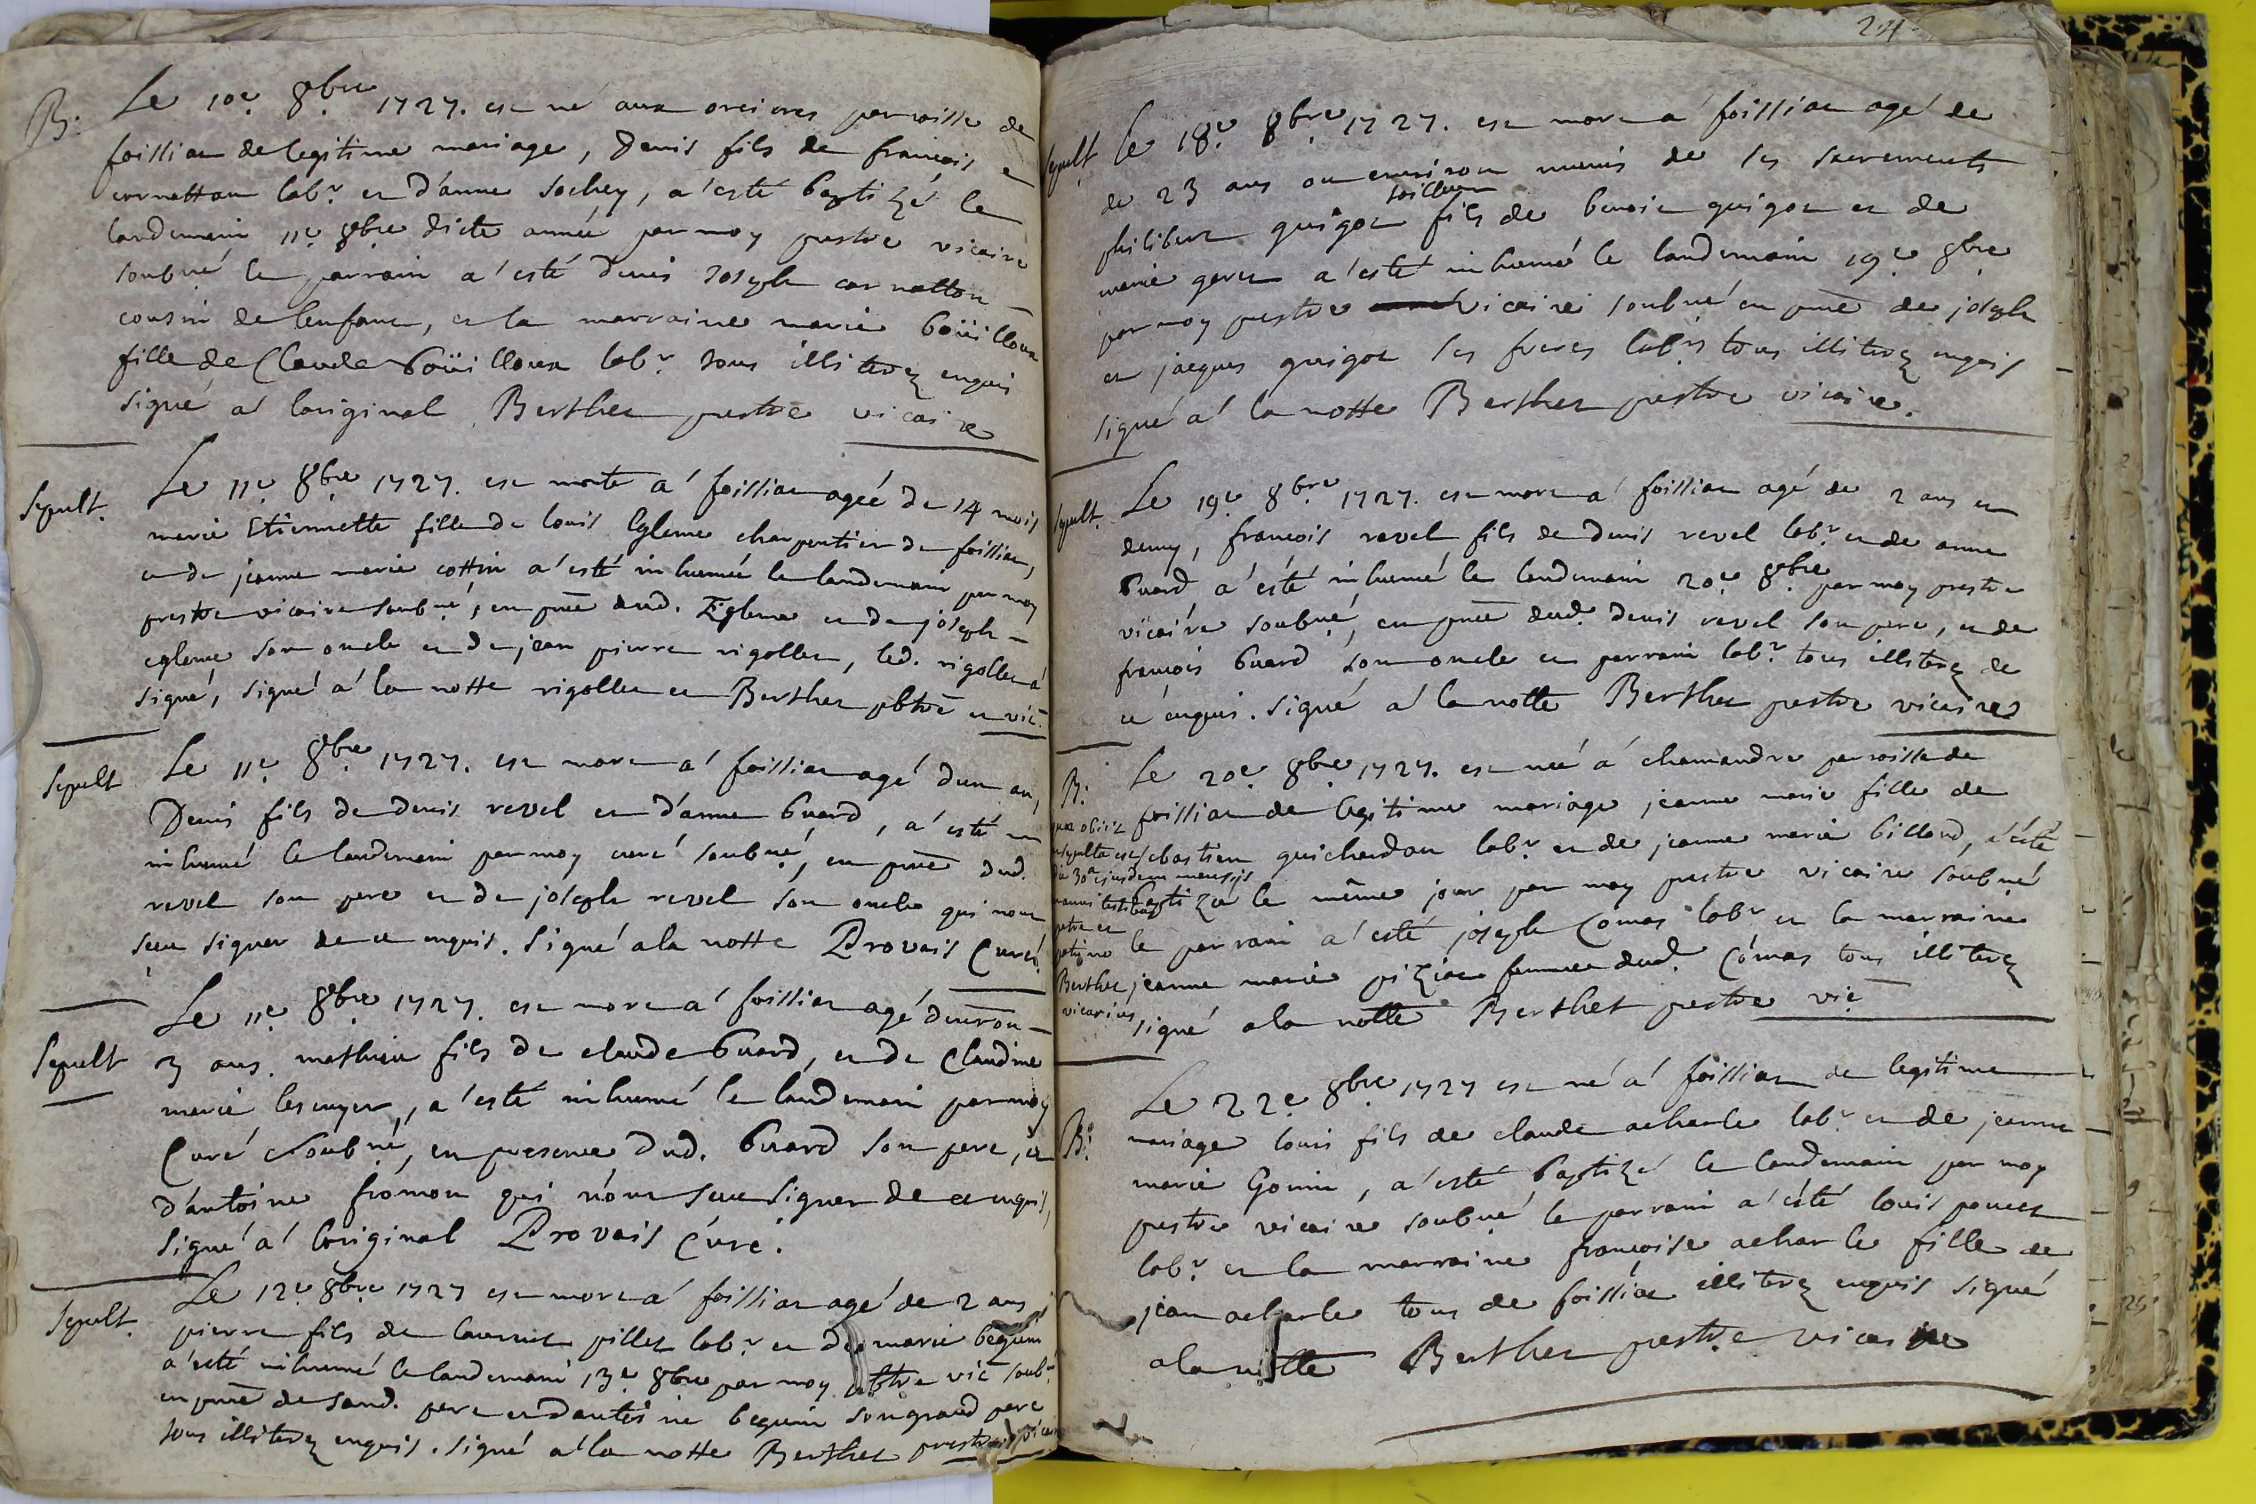 B. Le 10e. 8bre. 1727. est né aux orcieres parroisse de
foissiat de legitime mariage, Denis fils de francois
cornatton labr. et d'anne sochey, a'esté baptizé le
landemain 11e. 8bre dicte année par moy prestre vicaire
soubné, le parrain a'esté denis joseph cornatton
cousin de lenfant, et la marraine marie boüilloux
fille de Claude boüilloux labr. tous illiterez enquis
signé a' loriginal Berthet prestre vicaire
Sepult. Le 11e. 8bre. 1727. est morte a' foissiat ageé de 14 mois
marie Etiennette fille de louis Egleme charpentier de foissiat,
et de jeanne marie cottin a'esté inhumeé le landemain par moy
prestre vicaire soubné, en pnce dud. Egleme et de joseph
egleme son oncle et de jean pierre rigollet, led. rigollet a'
signé, signé a' la notte rigollet et Berthet pbtre et vic.
Sepult Le 11e. 8bre. 1727. est mort a' foissiat agé d'un an,
Denis fils de denis revel et d'anne buard, a'esté
inhumé le landemain par moy curé soubné, en pnce dud.
revel son pere et de joseph revel son oncle qui n'ont
sceu signer de ce enquis. signé a la notte Provais Curé
Sepult Le 11e. 8bre. 1727. est mort a' foissiat agé denviron
3 ans. mathieu fils de claude buard, et de Claudine
marie lescuyer, a'esté inhumé le landemain par moy
Curé soubné, en presence dud. buard son pere, et
d'antoine fromon qui n'ont sceu signer de ce enquis,
signé a' loriginal Provais Curé.
Sepult. Le 12e. 8bre. 1727 est mort a' foissiat agé de 2 ans
pierre fils de laurent pillet labr. et de marie beguin
a'esté inhumé le landemain 13e. 8bre par moy pbtre vic soubné
en pnce de sond. pere et dantoine beguin son grand pere
tous illiterez enquis. signé a' la notte Berthet prestre vicaire
24
Sepult Le 18e. 8bre. 1727. est mort a' foissiat agé de
de 23 ans ou environ munis de ses sacrements
philibert guigot tailleur fils de benoit guigot et de
marie geret a'esté inhumé le landemain 19e. 8bre
par moy prestre vicaire soubné en pnce de joseph
et jacques guigot ses freres labrs tous illiterez enquis
signé a' la notte Berthet prestre vicaire.
Sepult. Le 19e. 8bre. 1727. est mort a' foissiat agé de 2 ans et
demy, francois revel fils de denis revel labr. et de anne
buard a'esté inhumé le landemain 20e. 8bre. par moy prestre
vicaire soubné, en pnce dud. denis revel son pere, et de
francois buard son oncle et parrain labr. tous illiterez de
ce enquis. signé a' la notte Berthet prestre vicaire
B. Le 20e. 8bre. 1727. est neé a' chamandre parroisse de
foissiat de legitime mariage jeanne marie fille de
sebastien guichardon labr. et de jeanne marie billoud, a'esté
baptizeé le même jour par moy prestre vicaire soubné
le parrain a'esté joseph Comas labr. et la marraine
jeanne marie piziat femme dud. Comas tous illiterez
signé a la notte Berthet prestre vic
quæ obiit
et sepulta est
die 30a ejusdem mensis
patre et
patrino
Berthet
vicarius
B. Le 22e. 8bre. 1727 est né a' foissiat de legitime
mariage louis fils de claude acharle labr. et de jeanne
marie Gonin, a'esté baptizé le landemain par moy
prestre vicaire soubné le parrain a'esté louis poncet
labr. et la marraine francoise acharle fille de
jean acharle tous de foissiat illiterez enquis signé
a la notte Berthet prestre vicaire